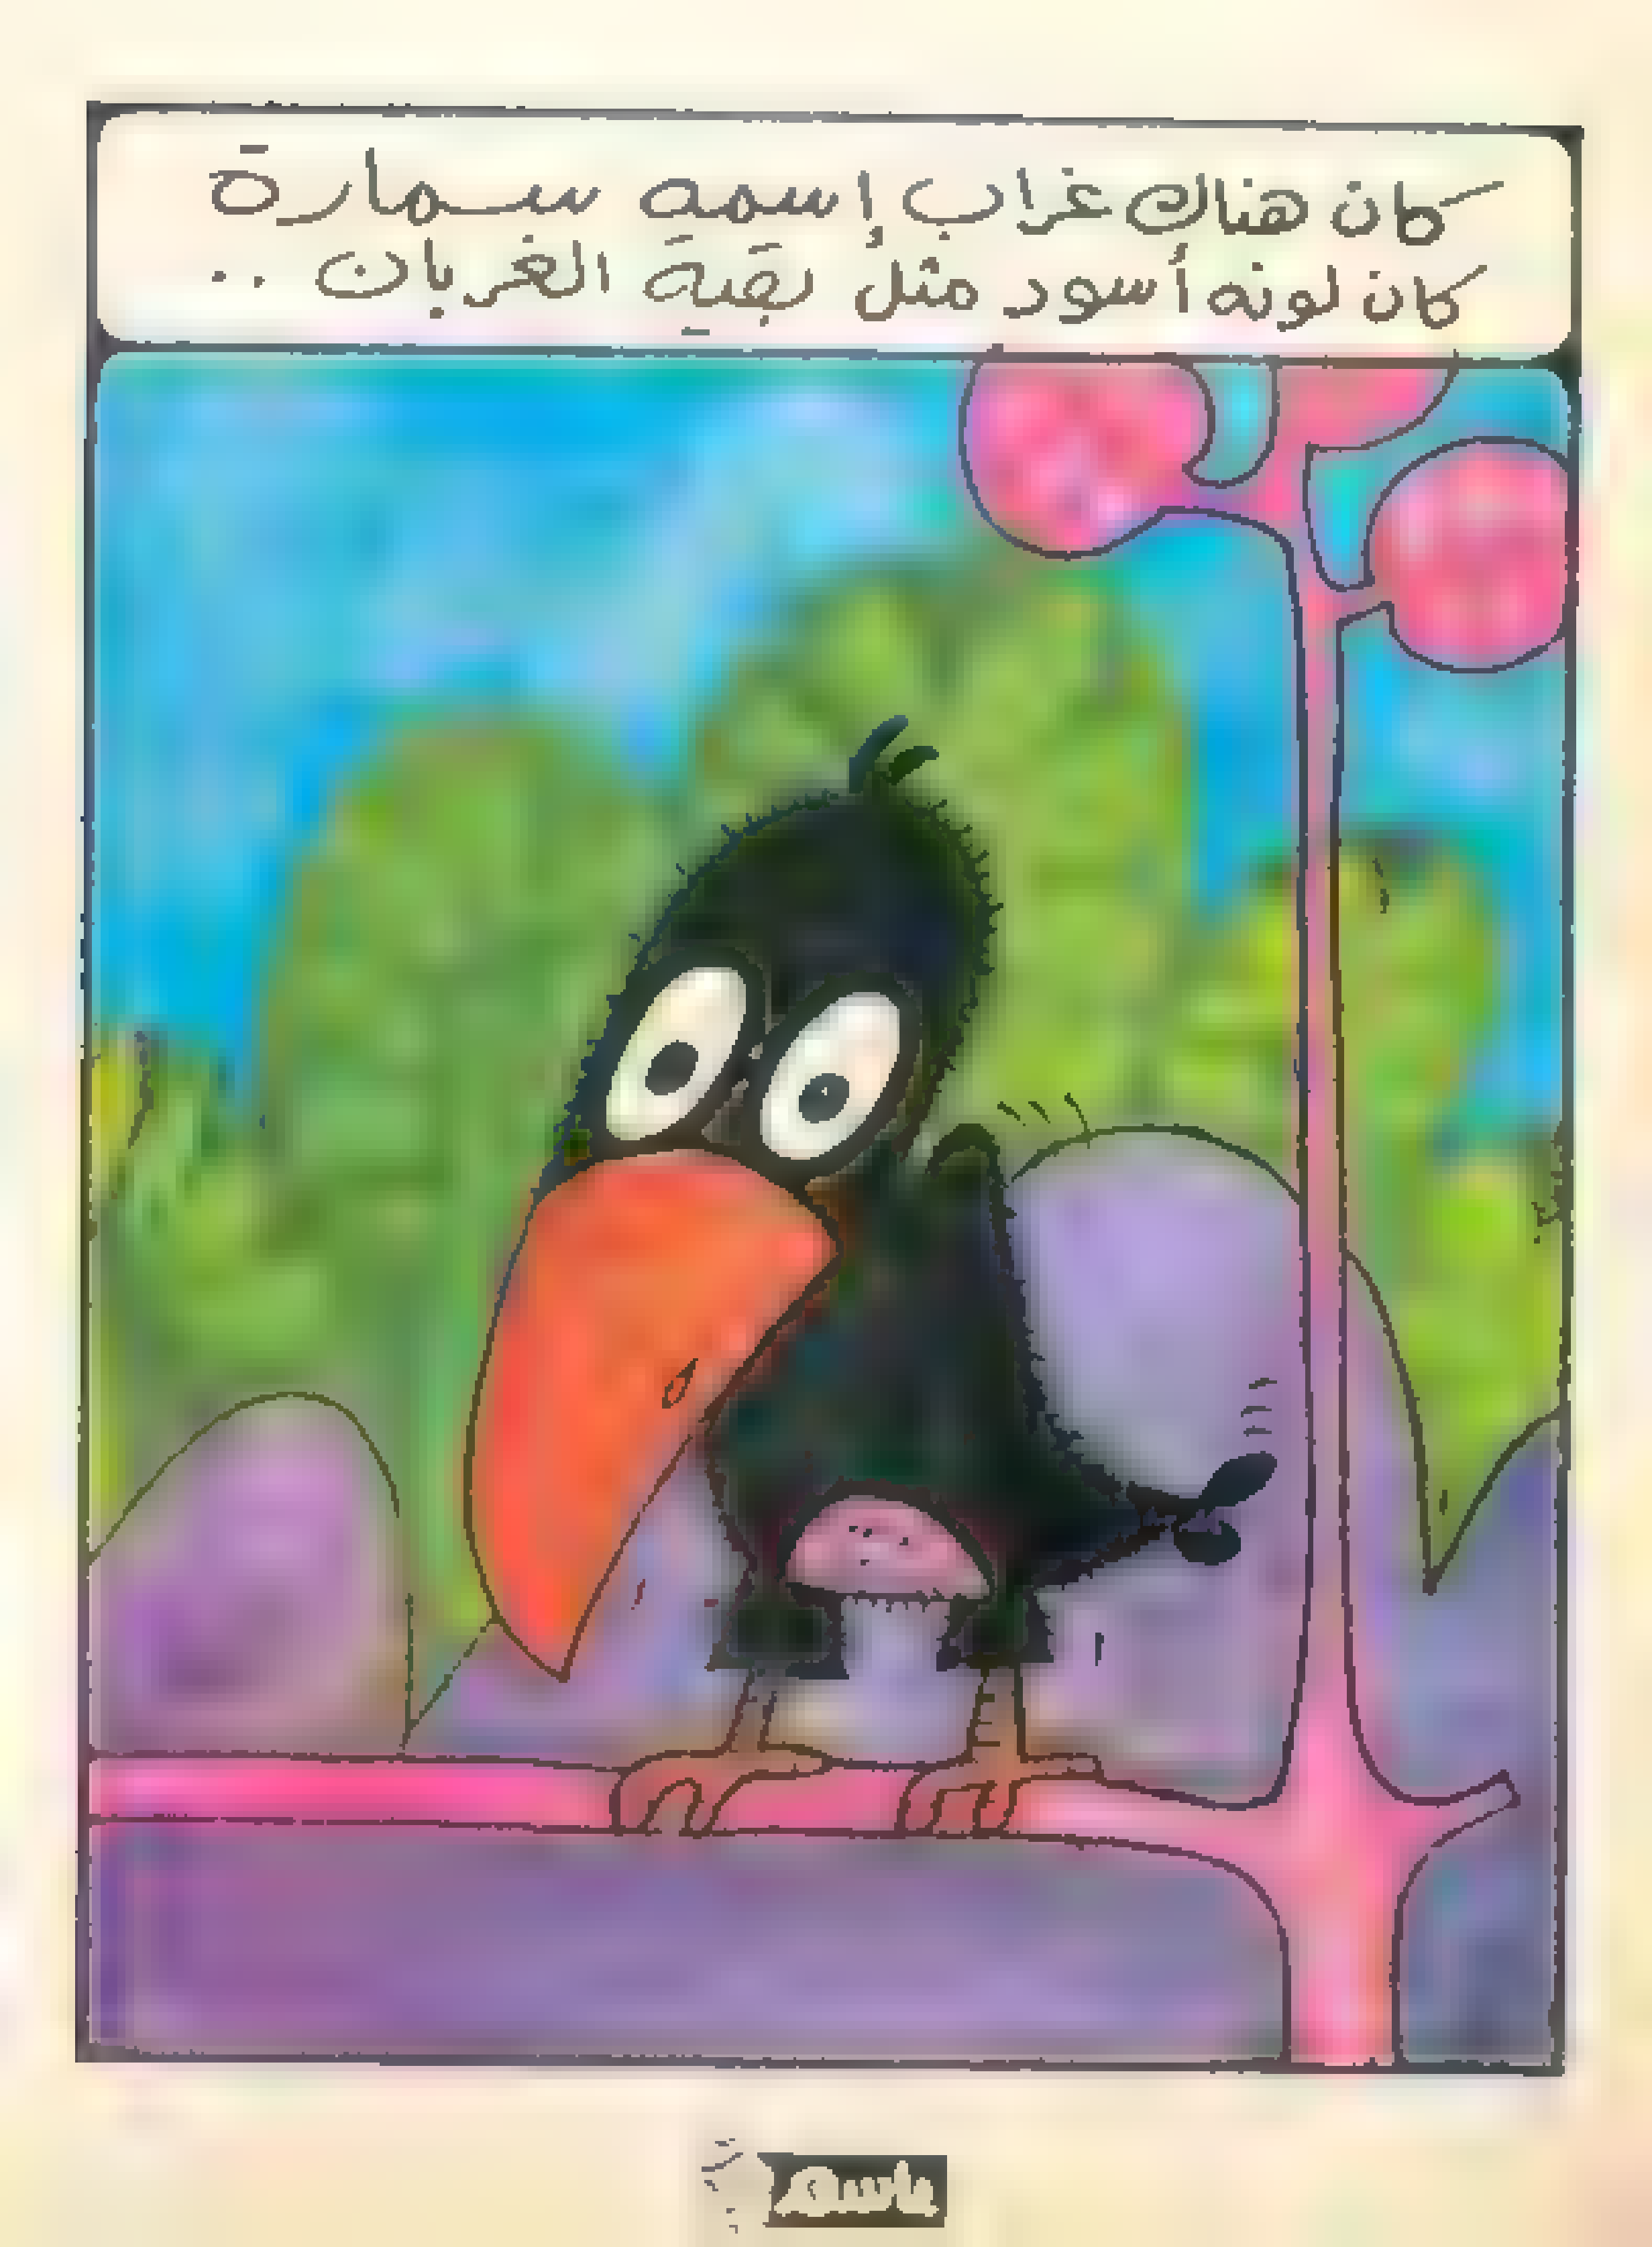 كان هناك غراب إسمه سمارة
كان لونه أسود مثل بقية الغربان ..